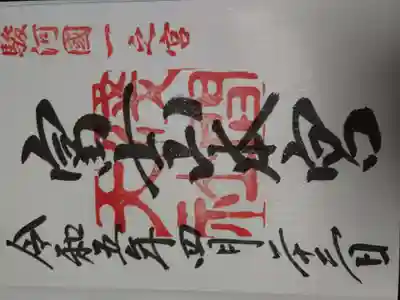 駿河國一之宮
富士山本宮
淺間
大社
令和五年四月二十三日